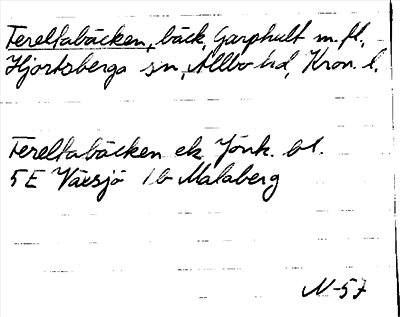 Tereltabäcken, bäck, Garphult m.fl.,
Hjortsberga sn, Allbo hd, Kron. l.
Tereltabäcken ek. Jönk. bl.
5E Växsjö 1b Malaberg
N-57